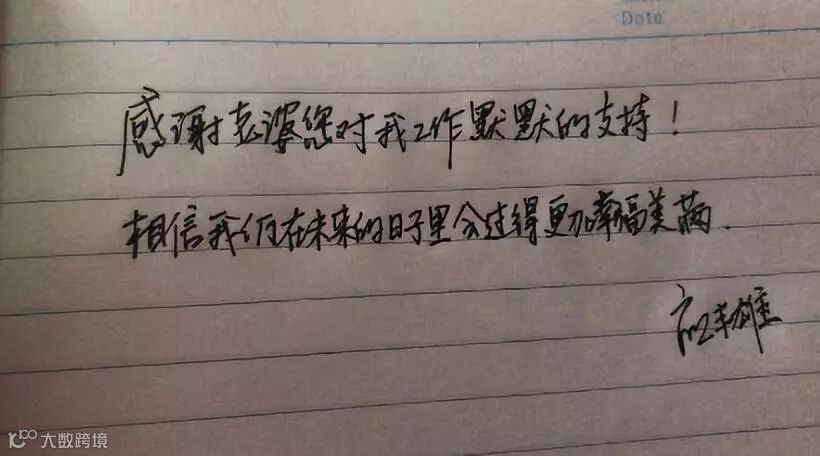 Date
感谢老婆您对我工作默默的支持！
相信我们在未来的日子里会过得更加幸福美满.
大数跨境